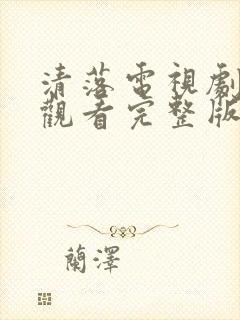 清落電視劇
觀看完整版
蘭澤